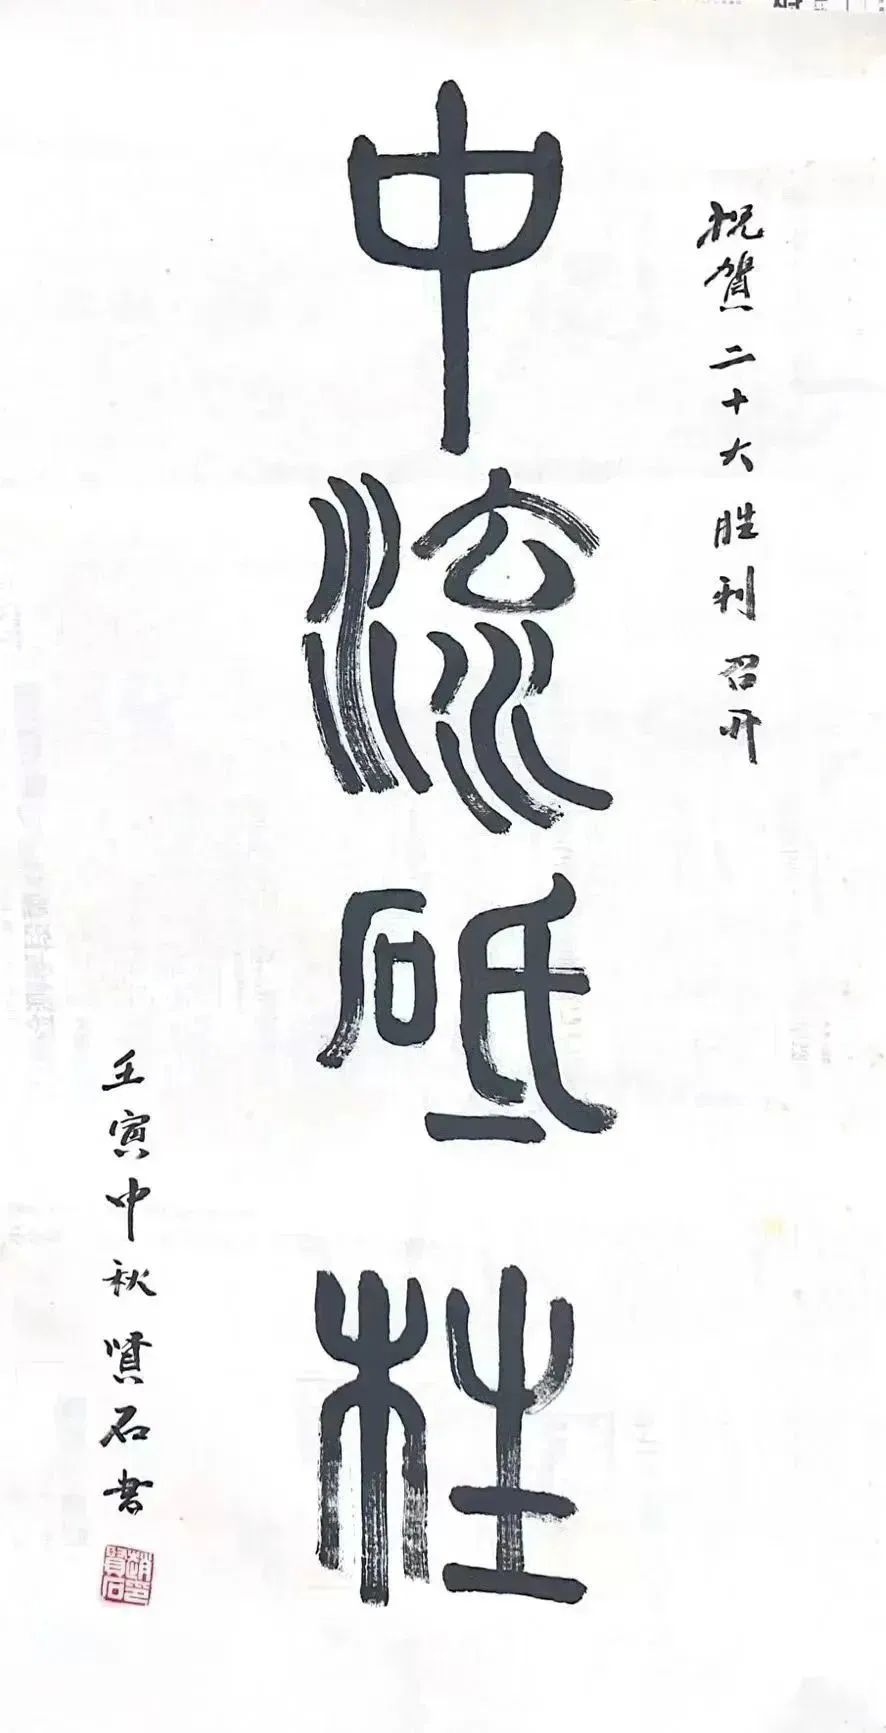 祝贺二十大胜利召开
中流砥柱
壬寅中秋贤石书
赵印贤石